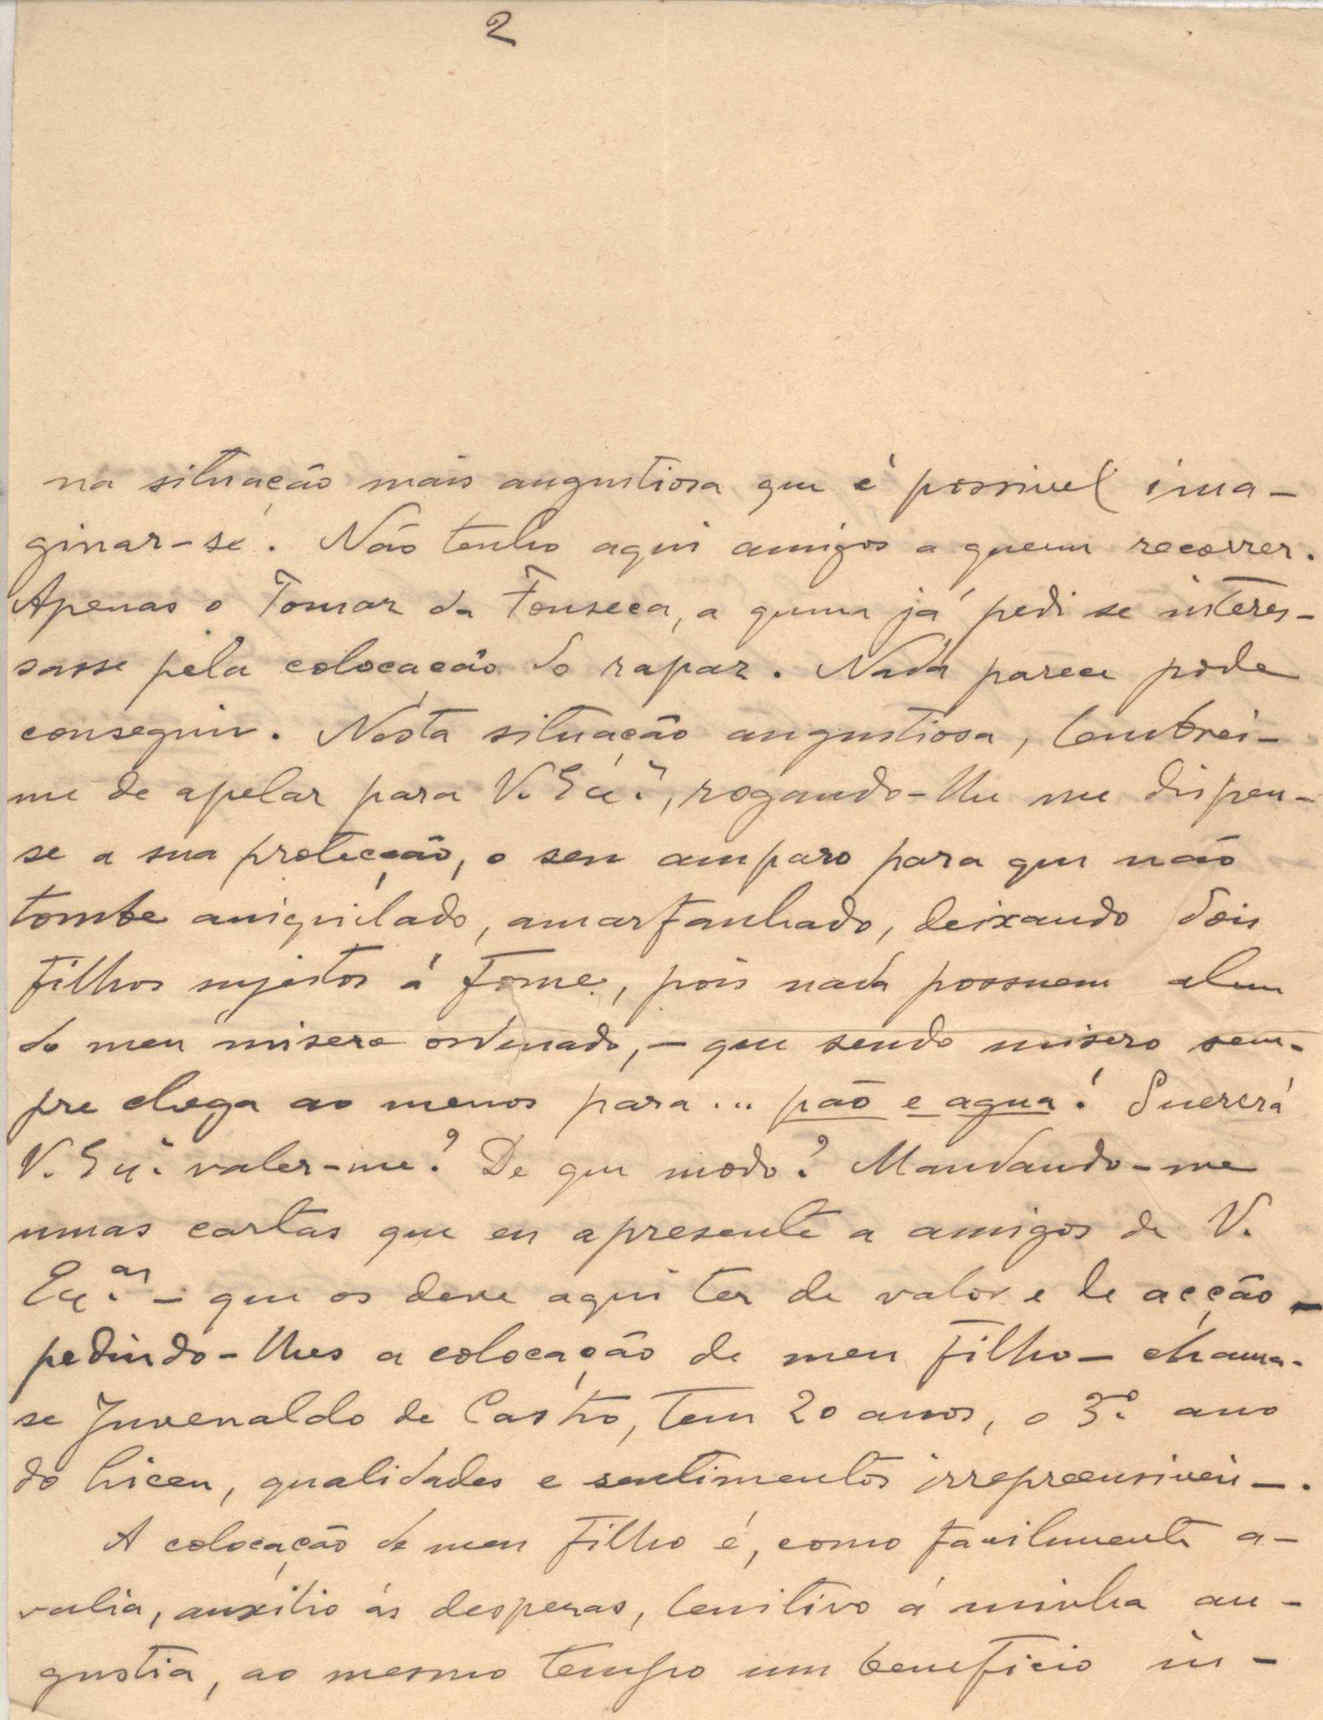 2
na situação mais angustiosa que é possivel ima-
ginar-se. Não tenho aqui amigos a quem recorrer.
Apenas o Tomar da Fonseca, a quem já pedi se interes-
sasse pela colocação do rapaz. Nada parece pode
conseguir. Nesta situação angustiosa, lembrei-
me de apelar para V. Exª, rogando-lhe me dispen-
se a sua protecção, o seu amparo para que não
tombe aniquilado, amarfanhado, deixando dois
filhos sujeitos á fome, pois nada possuem alem
do meu misero ordenado, - que sendo misero sem-
pre chega ao menos para ... pão e agua! Quererá
V. Exª valer-me? De que modo? Mandando-me
umas cartas que eu apresente a amigos de V.
Exªs - que os deve aqui ter de valor e de acção -
pedindo-lhes a colocação de meu filho - chama-
se Juvenaldo de Castro, tem 20 anos, o 3º ano
do liceu, qualidades e sentimentos irrepreensiveis -.
A colocação de meu filho é, como facilmente a-
valia, auxilio ás despezas, lenitivo á minha an-
gustia, ao mesmo tempo um beneficio in-